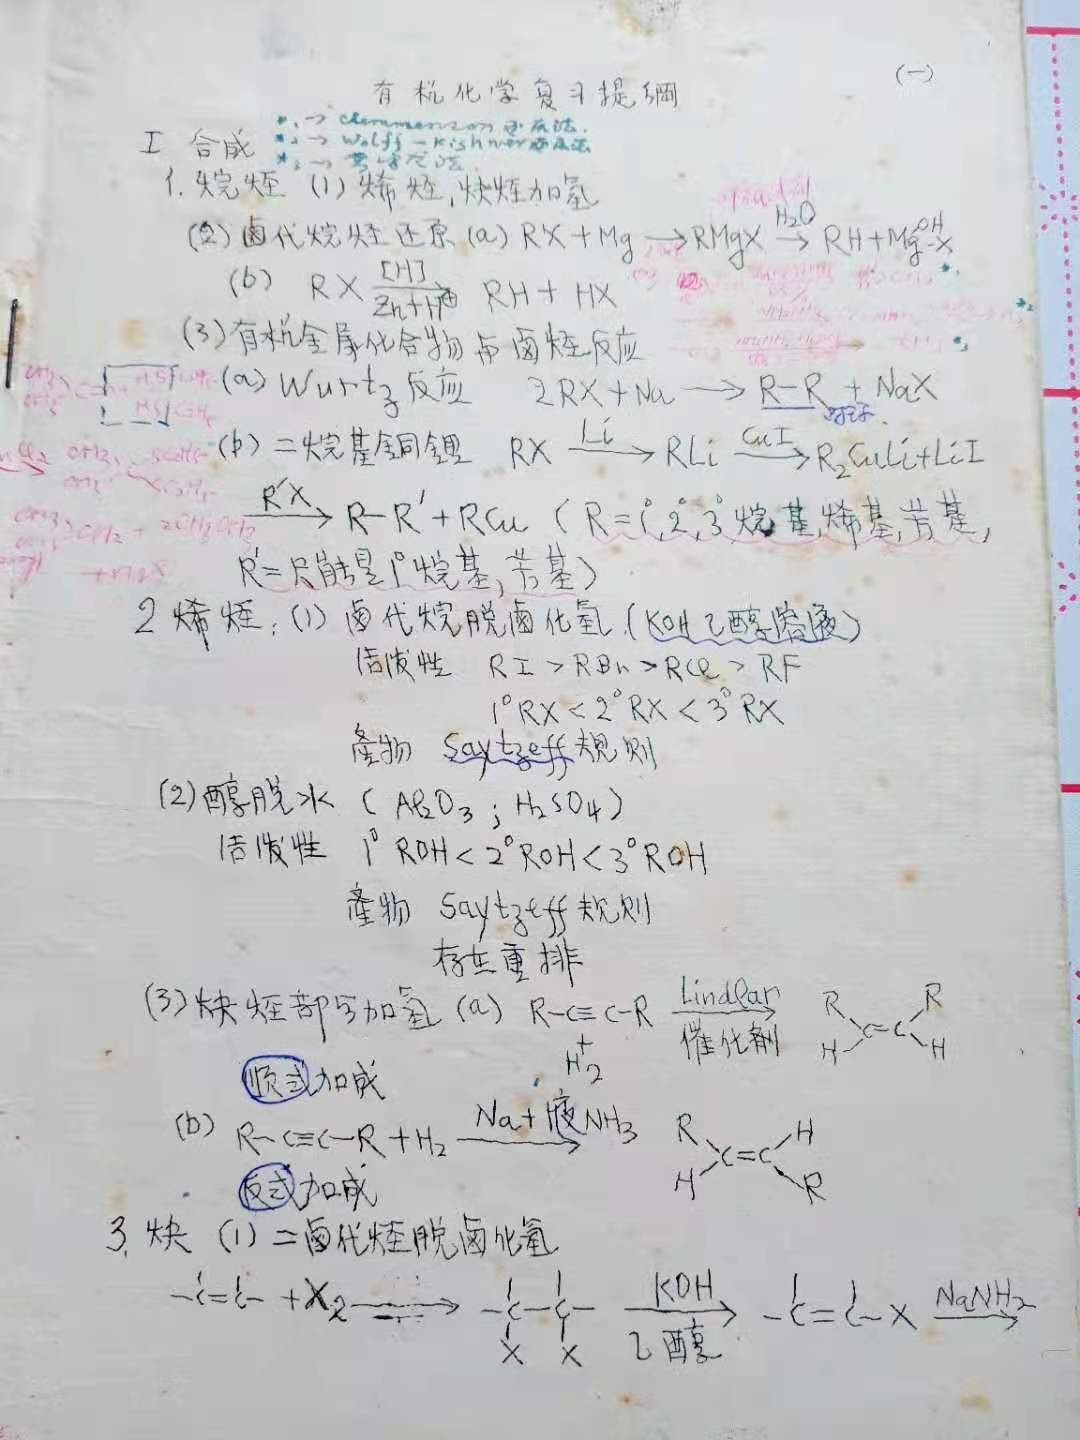 (一)
有机化学复习提纲
*1 → Clemmenson还原法.
*2 → Wolff-Kishner还原法
*3 →
I 合成
1. 烷烃 (1) 烯烃,炔烃加氢
(2) 卤代烷烃还原 (a) RX + Mg → RMgX —H₂O→ RH + Mg OH X
(b) RX —[H] Zn+H⊕→ RH + HX
(3) 有机金属化合物与卤烃反应
(a) Wurtz反应 2RX + Na → R-R + NaX
(b) 二烷基铜锂 RX —Li→ RLi —CuI→ R₂CuLi+LiI
—R'X→ R-R' + RCu (R=1°,2°,3°烷基,烯基,芳基,
R'=只能是1°烷基,芳基)
2 烯烃: (1) 卤代烷脱卤化氢.(KOH乙醇溶液)
活泼性 RI > RBr > RCl > RF
1°RX < 2°RX < 3°RX
產物 Saytzeff规则
(2) 醇脱水 (Al₂O₃; H₂SO₄)
活泼性 1°ROH < 2°ROH < 3°ROH
產物 Saytzeff规则
存在重排
(3) 炔烃部分加氢 (a) R-C≡C-R + H₂ —Lindlar 催化剂→ R H C=C R H
顺式加成
(b) R-C≡C-R + H₂ —Na+液NH₃→ R H C=C H R
反式加成
3. 炔 (1) 二卤代烃脱卤化氢
-C=C- + X₂ → -C-C- X X —KOH 乙醇→ -C=C-X —NaNH₂→